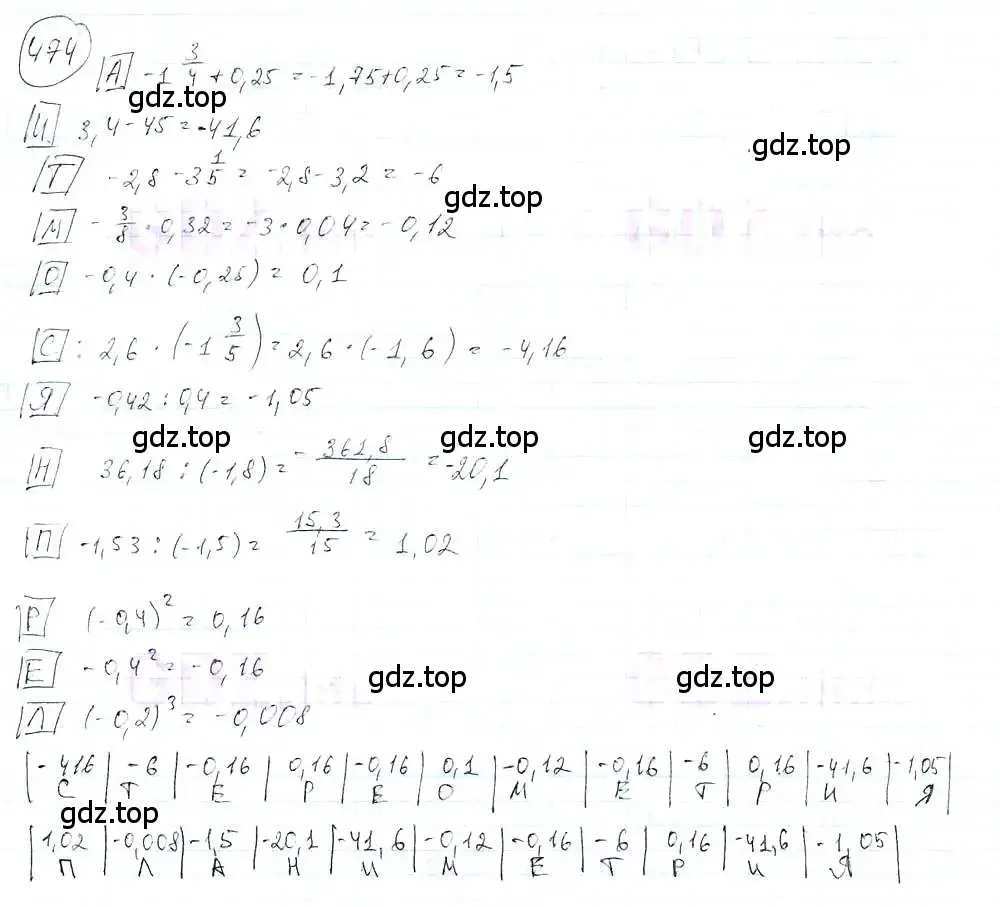 474
А -1 3/4 + 0,25 = -1,75+0,25 = -1,5
gdz.top
И 3,4-45 = -41,6
gdz.top
Т -2,8 -3 1/5 = -2,8-3,2 = -6
gdz.top
М -3/8 · 0,32 = -3 · 0,04 = -0,12
О -0,4 · (-0,25) = 0,1
С : 2,6 · (-1 3/5) = 2,6 · (-1,6) = -4,16
Я -0,42 : 0,4 = -1,05
gdz.top gdz.top gdz.top
Н 36,18 : (-1,8) = - 361,8/18 = -20,1
П -1,53 : (-1,5) = 15,3/15 = 1,02
Р (-0,4)² = 0,16
Е -0,4² = -0,16
gdz.top gdz.top
Л (-0,2)³ = -0,008
|-416|-6|-0,16|0,16|-0,16|0,1|-0,12|-0,16|-6|0,16|-41,6|-1,05|
С Т Е Р Е О М Е Т Р И Я
gdz.top
|1,02|-0,008|-1,5|-20,1|-41,6|-0,12|-0,16|-6|0,16|-41,6|-1,05|
П Л А Н И М Е Т Р И Я